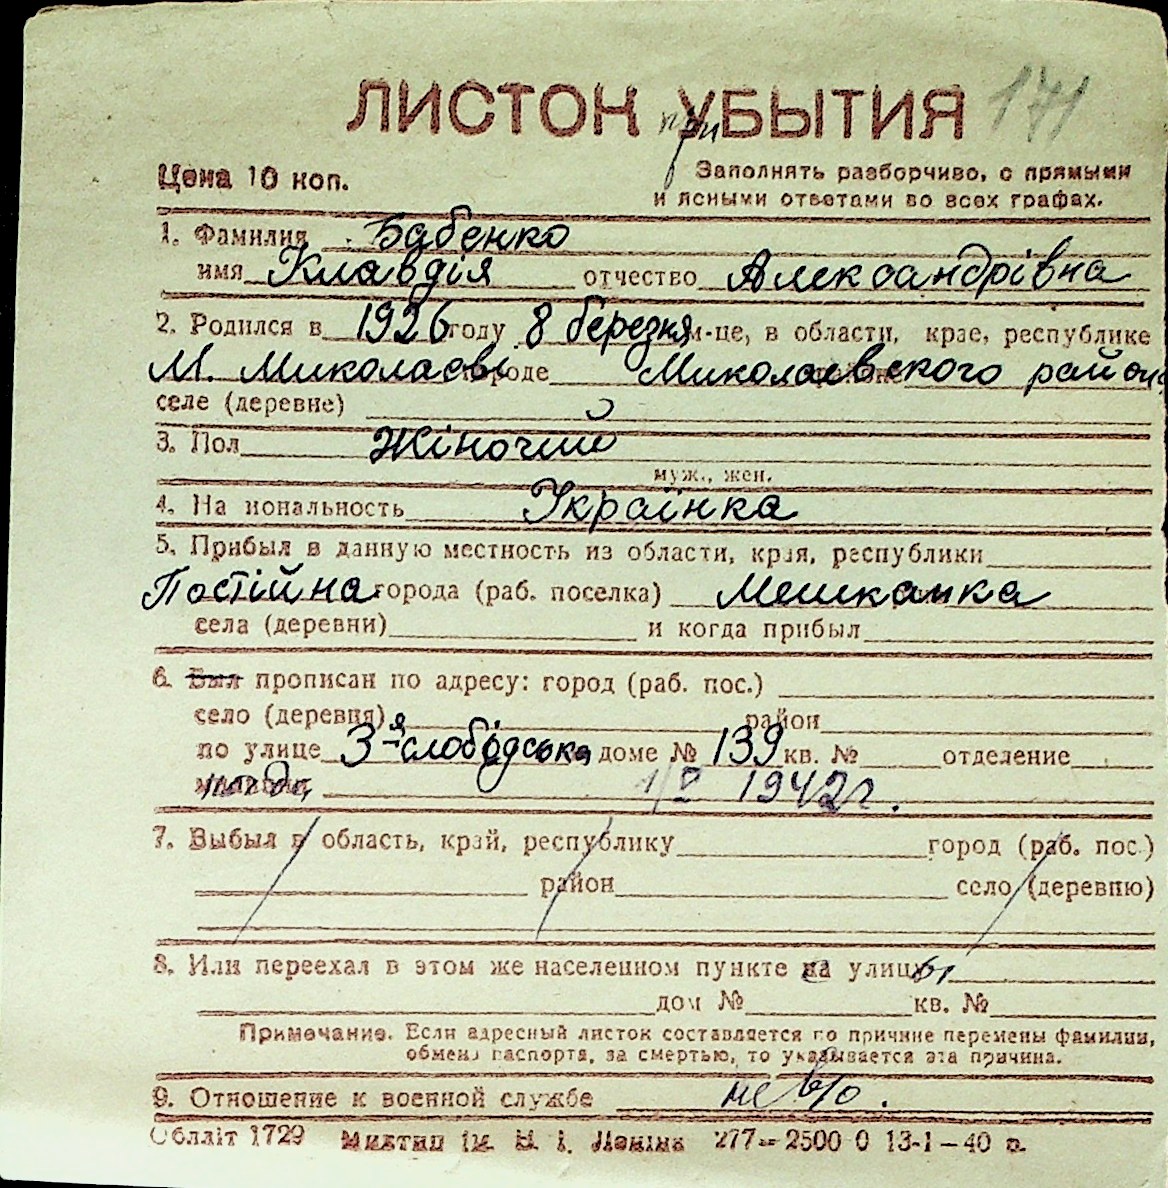 ЛИСТОК при УБЫТИЯ 171
Цена 10 коп.
Заполнять разборчиво, с прямыми
и ясными ответами во всех графах.
1. Фамилия Бабенко
имя Клавдія отчество Александрівна
2. Родился в 1926 году 8 березня м-це, в области, крае, республике
М. Миколаєві городе Миколаевского район
селе (деревне)
3. Пол Жіночий
муж., жен.
4. Национальность Українка
5. Прибыл в данную местность из области, края, республики
Постійна города (раб. поселка) Мешканка
села (деревни) и когда прибыл
6. Был прописан по адресу: город (раб. пос.)
село (деревня) район
по улице 3-я слобідська доме № 139 кв. № отделение
1942 г.
7. Выбыл в область, край, республику город (раб. пос.)
район село (деревню)
8. Или переехал в этом же населенном пункте на улицы
дом № кв. №
Примечание. Если адресный листок составляется по причине перемены фамилии,
обмена паспорта, за смертью, то указывается эта причина.
9. Отношение к военной службе не в/о.
Обллiт 1729 Миктип iм. В. І. Ленiна 277—2500 0 13-1—40 р.